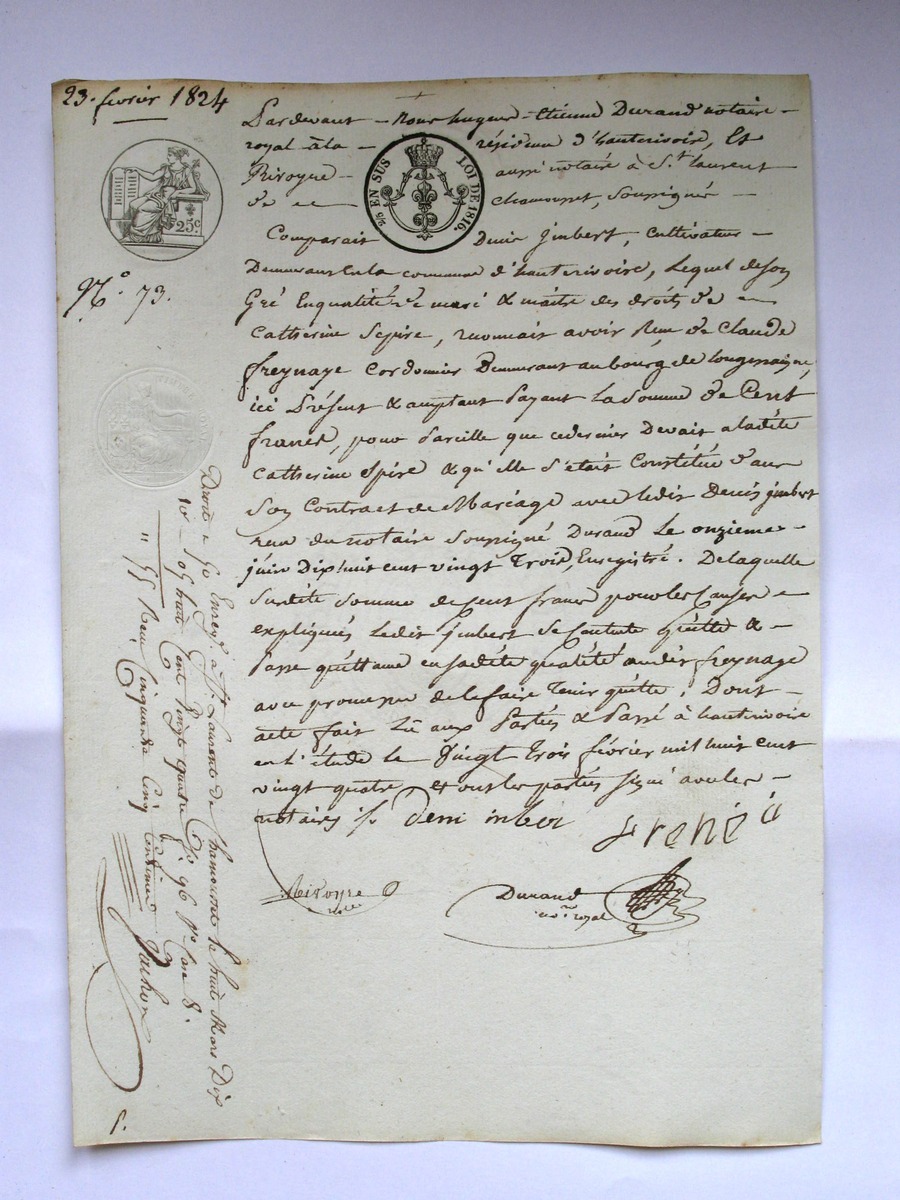 23. fevrier 1824
Pardevant - Nous hugue - Etienne Durand notaire -
royal - à la - résidence d'hauterivoire, Et
Rivoyre aussi notaire à St. Laurent
de chamousset, soussignés
2/5 EN SUS LOI DE 1816.
25c
Comparait Denis Jmbert, Cultivateur -
Demeurant En la commune d'hauterivoire, Lequel de son
Gré En qualité de mari & maitre des droits de
N.º 73.
Catherine Spire, reconnait avoir Reçu de Claude
freynaye Cordonnier Demeurant au bourg de Longessaigne,
ici Présent & acceptant Payant La Somme de Cent
francs, pour Pareille que ce dernier Devait a ladite
Catherine Spire & qu'elle s'était Constituée dans
Son Contract de Mariage avec ledit Denis jmbert
recu du notaire Soussigné Durand Le onzieme
juin Dix huit cent vingt Trois, Enregistré. De laquelle
Susdite Somme de Cent francs pour les Causes
expliquées Ledit Jmbert se Contente Quitte &
Passe quittance en sadite qualité audit freynaye
avec promesse de le faire Tenir quitte. Dont -
acte fait Lu aux Parties & Passé à hauterivoire
en l'étude le Vingt Trois février mil huit cent
vingt quatre et ont les parties signé avec les -
notaires
Deni inber
Rivoyre
nore
Durand
nore royal
Enregé. à St. Laurent de Chamousset le huit Mars Dix
huit Cent Vingt quatre fo. 96 Vo. Case 8.
Reçu Cinquante Cinq Centimes